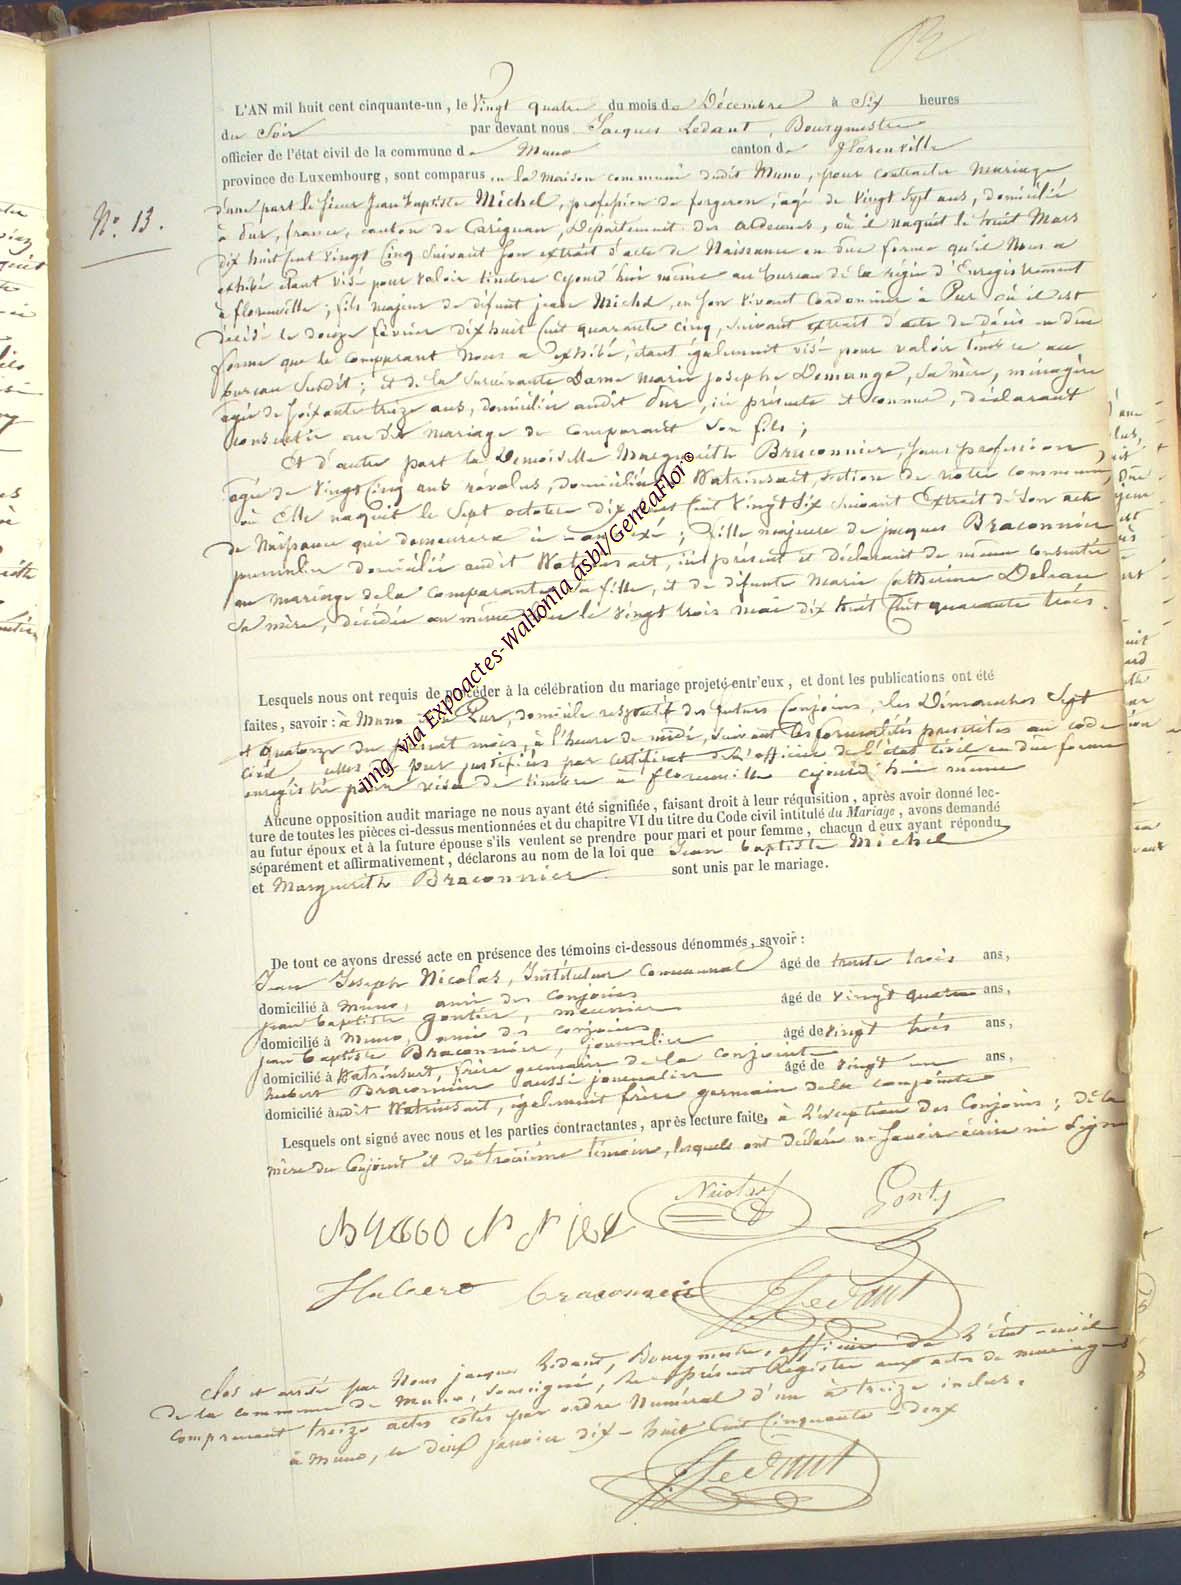 L'AN mil huit cent cinquante-un, le Vingt quatre du mois de Décembre à Six heures
du Soir par devant nous Jacques Ledant, Bourgmestre
officier de l'état civil de la commune de Muno canton de Florenville
province de Luxembourg, sont comparus en la maison commune dudit Muno, pour contracter Mariage
N°. 13.
d'une part le sieur Jean Baptiste Michel, profession de forgeron, âgé de Vingt Sept ans, domicilié
à Pur, france, canton de Carignan, Département des ardennes, où il naquit le huit Mars
dix huit cent vingt Cinq Suivant son extrait d'acte de Naissance en due forme qu'il Nous a
exhibé étant visé pour valoir timbre cejourd'hui même au bureau de la régie d'Enregistrement
à florenville; fils majeur de défunt jean Michel, en son vivant Cordonnier à Pur où il est
décédé le douze février dixhuit Cent quarante cinq, suivant extrait d'acte de décès en due
forme que le comparant nous a exhibé, étant également visé pour valoir timbre au
bureau Susdit; et de la survivante Dame marie josephe Demange, sa mère, ménagère
agée de soixante treize ans, domiciliée audit Pur, ici présente et connue, déclarant
consentir au dit mariage de comparant son fils;
Et d'autre part la Demoiselle Marguerith Braconnier, sans profession
agée de Vingt Cinq ans révolus, domiciliée à Watrinsart, section de notre commune,
où Elle naquit le Sept octobre dix huit Cent Vingt Six suivant Extrait de son acte
de Naissance qui demeurera ci-annexé; fille majeure de jacques Braconnier
domicilié audit Watrinsart, ici présent et déclarant de même consentir
au mariage de la comparante sa fille, et de défunte Marie Catherine Deleau
sa mère, décédée au même lieu le Vingt trois mai dix huit Cent quarante trois.
Lesquels nous ont requis de procéder à la célébration du mariage projeté entr'eux, et dont les publications ont été
faites, savoir: à Muno et à Pur, domicile respectif des futurs Conjoins, les Dimanches Sept
et Quatorze du présent mois, à l'heure de midi, suivant les formalités prescrites au code
civil celles de Pur justifiées par certificat de l'officier de l'état civil en due forme
enregistré pour visa de timbre à florenville cejourd'hui même
Aucune opposition audit mariage ne nous ayant été signifiée, faisant droit à leur réquisition, après avoir donné lec-
ture de toutes les pièces ci-dessus mentionnées et du chapitre VI du titre du Code civil intitulé du Mariage, avons demandé
au futur époux et à la future épouse s'ils veulent se prendre pour mari et pour femme, chacun d'eux ayant répondu
séparément et affirmativement, déclarons au nom de la loi que Jean baptiste Michel
et Marguerith Braconnier sont unis par le mariage.
De tout ce avons dressé acte en présence des témoins ci-dessous dénommés, savoir:
Jean Joseph Nicolas, Instituteur Communal âgé de trente trois ans,
domicilié à Muno, ami des conjoins
jean baptiste gontier, meunier âgé de vingt quatre ans,
domicilié à Muno, ami des conjoins,
jean baptiste Braconnier, journalier âgé de vingt trois ans,
domicilié à Watrinsart, frère germain de la conjointe
hubert Braconnier aussi journalier âgé de vingt un ans,
domicilié audit Watrinsart, également frère germain de la conjointe
Lesquels ont signé avec nous et les parties contractantes, après lecture faite, à l'exception des Conjoins; de la
mère du Conjoint et du troisième témoin, lesquels ont déclaré ne savoir écrire ni Signer
Nicolas
Hubert braconnier JLedant
Clos et arrêté par Nous jacques Ledant, Bourgmestre, officier de l'état-civil
de la commune de Muno, soussigné, le présent Registre aux actes de mariages
comprenant treize actes cotés par ordre Numéral d'un à treize inclus.
à Muno, le deux janvier dix-huit Cent Cinquante-deux
JLedant
img via Expoactes-Wallonia asbl/GeneaFlor©